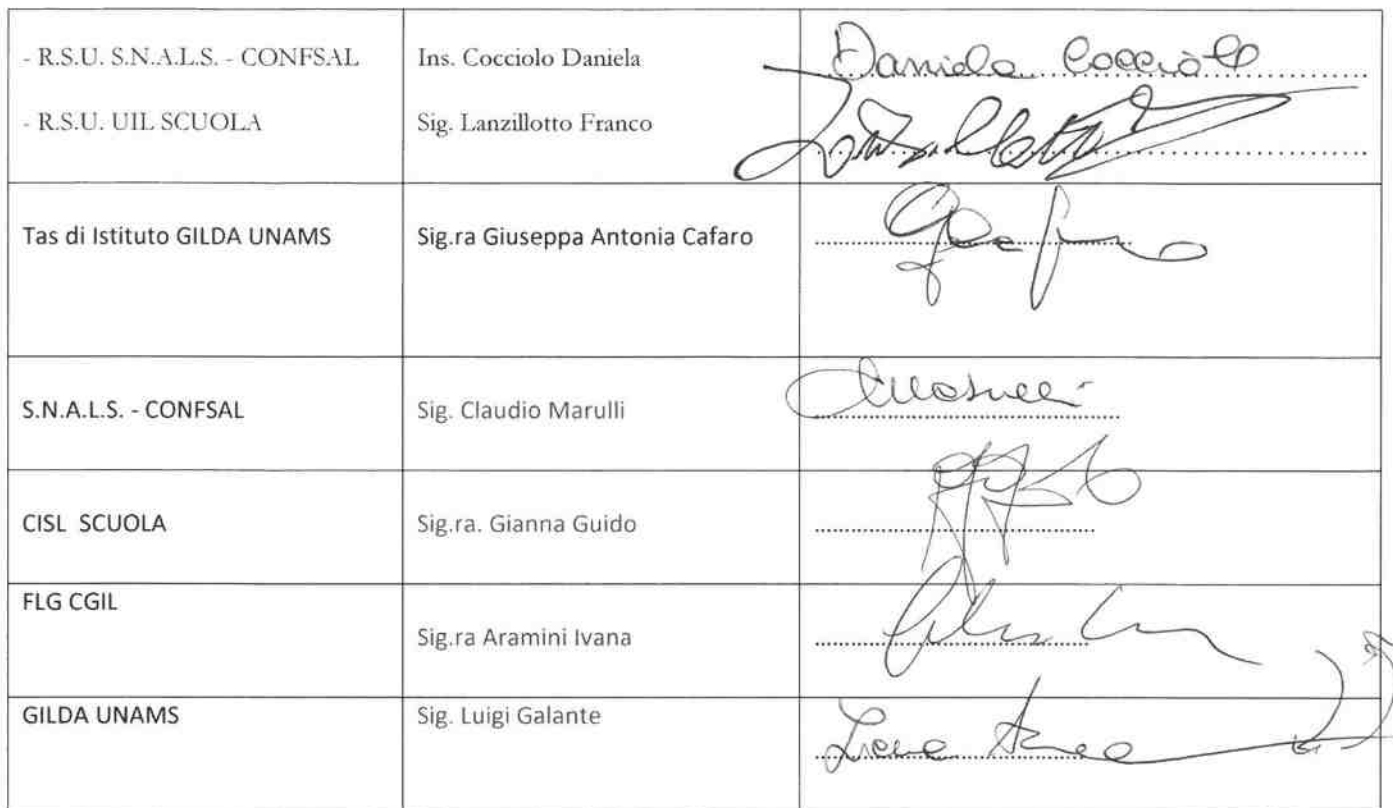 - R.S.U. S.N.A.L.S. - CONFSAL Ins. Cocciolo Daniela Daniela Cocciolo
- R.S.U. UIL SCUOLA Sig. Lanzillotto Franco
Tas di Istituto GILDA UNAMS Sig.ra Giuseppa Antonia Cafaro
S.N.A.L.S. - CONFSAL Sig. Claudio Marulli
CISL SCUOLA Sig.ra. Gianna Guido
FLG CGIL
Sig.ra Aramini Ivana
GILDA UNAMS Sig. Luigi Galante